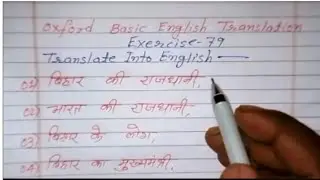 Oxford Basic English Translation
Exercise-79
Translate Into English
01) बिहार की राजधानी,
02) भारत की राजधानी,
03) बिहार के लोग,
04) बिहार का मुख्यमंत्री.